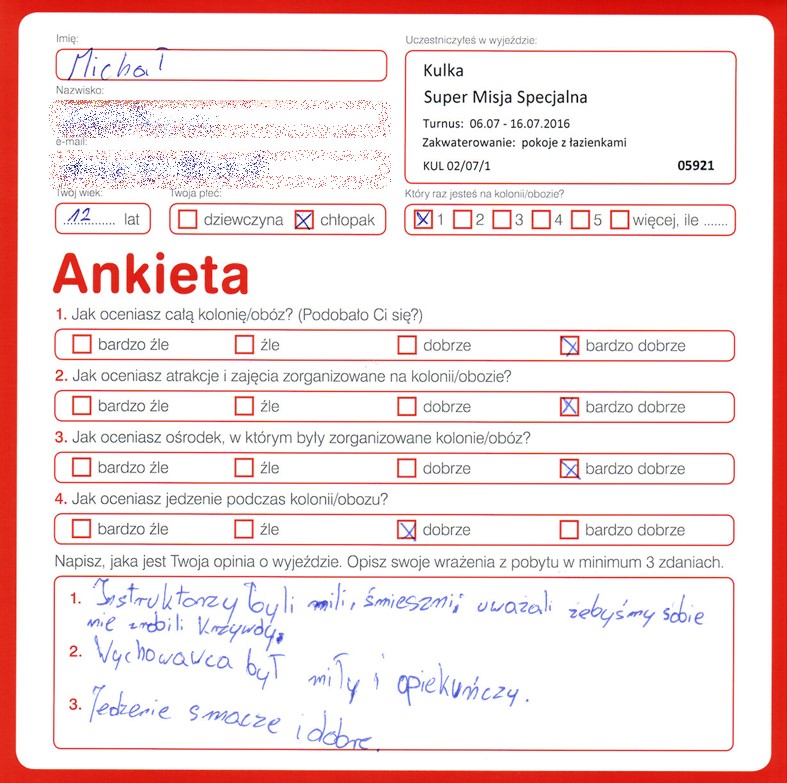 Imię:
Michał
Nazwisko:
e-mail:
Twój wiek:
12 lat
Twoja płeć:
dziewczyna chłopak
Uczestniczyłeś w wyjeździe:
Kulka
Super Misja Specjalna
Turnus: 06.07 - 16.07.2016
Zakwaterowanie: pokoje z łazienkami
KUL 02/07/1 05921
Który raz jesteś na kolonii/obozie?
1 2 3 4 5 więcej, ile .......
Ankieta
1. Jak oceniasz całą kolonię/obóz? (Podobało Ci się?)
bardzo źle źle dobrze bardzo dobrze
2. Jak oceniasz atrakcje i zajęcia zorganizowane na kolonii/obozie?
bardzo źle źle dobrze bardzo dobrze
3. Jak oceniasz ośrodek, w którym były zorganizowane kolonie/obóz?
bardzo źle źle dobrze bardzo dobrze
4. Jak oceniasz jedzenie podczas kolonii/obozu?
bardzo źle źle dobrze bardzo dobrze
Napisz, jaka jest Twoja opinia o wyjeździe. Opisz swoje wrażenia z pobytu w minimum 3 zdaniach.
1. Instruktorzy byli mili, śmieszni i uważali żebyśmy sobie
nie zrobili krzywdy.
2. Wychowawca był miły i opiekuńczy.
3. Jedzenie smacze i dobre.